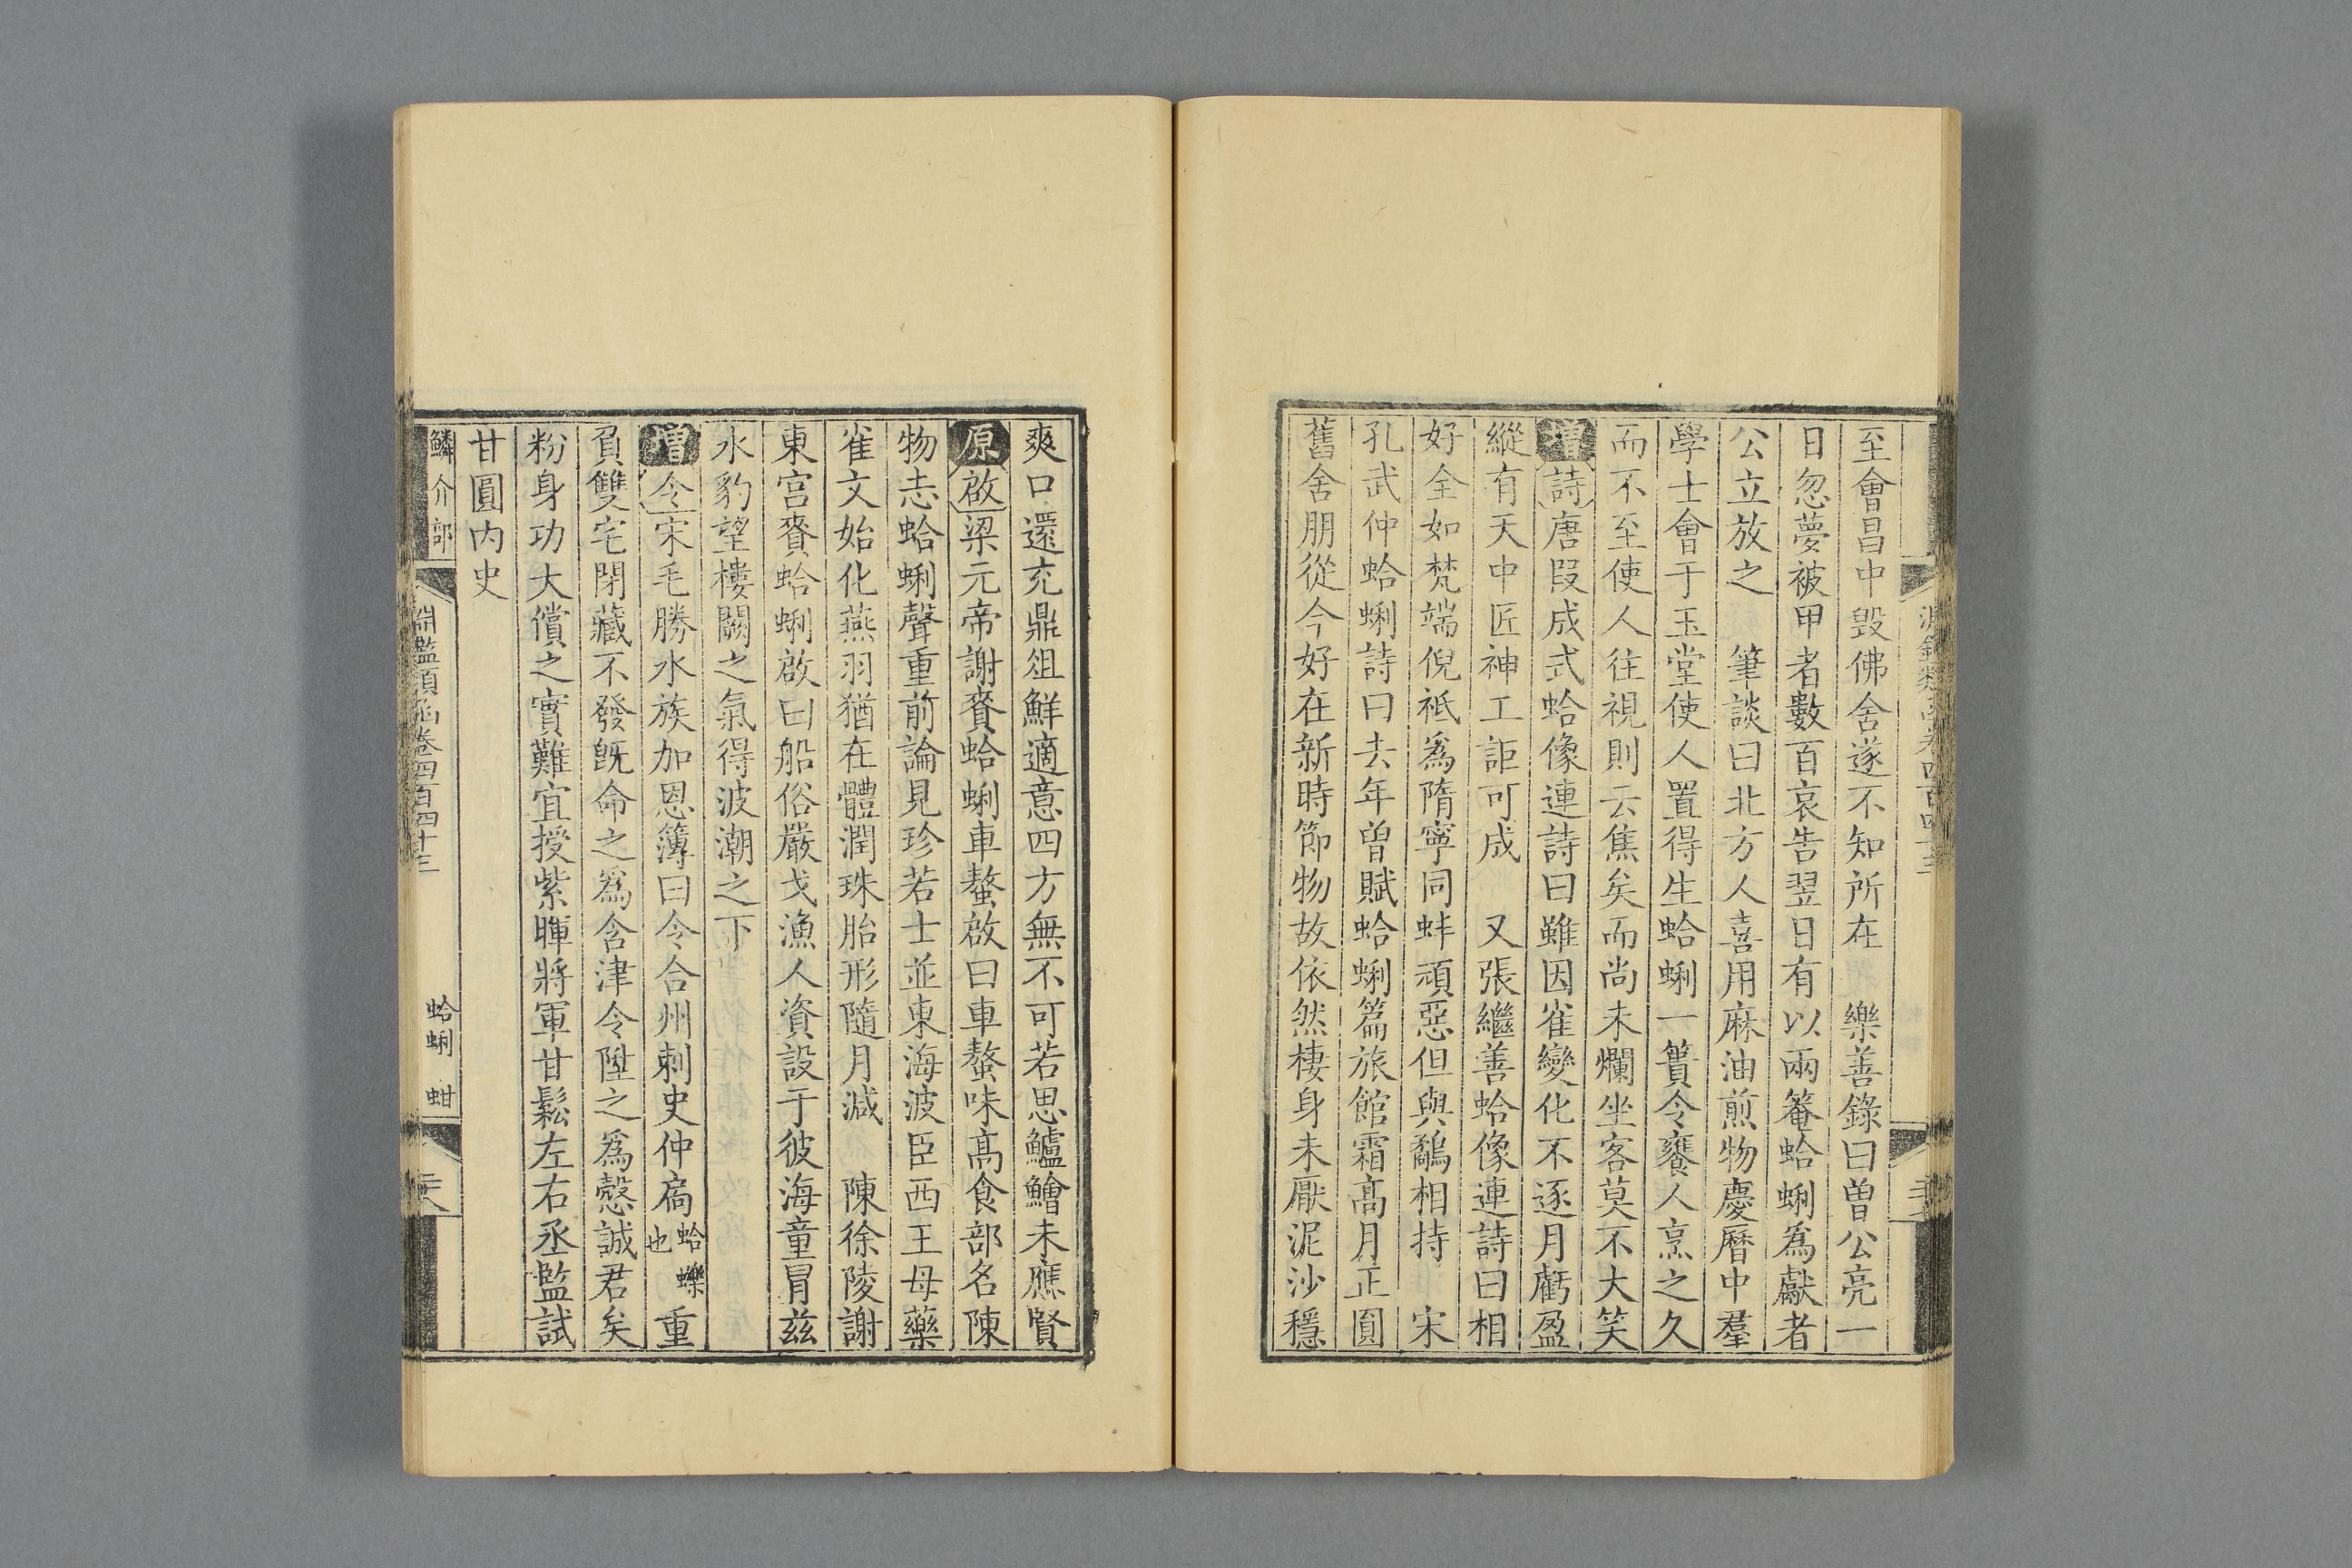 至會昌中毀佛舍遂不知所在　樂善錄曰曾公亮一
日忽夢被甲者數百哀告翌日有以兩菴蛤蜊爲獻者
公立放之　筆談曰北方人喜用麻油煎物慶曆中羣
學士會于玉堂使人置得生蛤蜊一簣令饔人烹之久
而不至使人往視則云焦矣而尚未爛坐客莫不大笑
增詩唐段成式蛤像連詩曰雖因雀變化不逐月虧盈
縱有天中匠神工詎可成　又張繼善蛤像連詩曰相
好全如梵端倪祗爲隋寧同蚌頑惡但與鷸相持　宋
孔武仲蛤蜊詩曰去年曾賦蛤蜊篇旅館霜高月正圓
舊舍朋從今好在新時節物故依然棲身未厭泥沙穩
爽口還充鼎俎鮮適意四方無不可若思鱸鱠未應賢
原啟梁元帝謝賚蛤蜊車螯啟曰車螯味高食部名陳
物志蛤蜊聲重前論見珍若士並東海波臣西王母藥
雀文始化燕羽猶在體潤珠胎形隨月減　陳徐陵謝
東宮賚蛤蜊啟曰船俗嚴戈漁人資設于彼海童冒茲
水豹望樓闕之氣得波潮之下
增令宋毛勝水族加恩簿曰令合州刺史仲扃蛤蠑也重
負雙宅閉藏不發旣命之爲含津令陞之爲慤誠君矣
粉身功大償之實難宜授紫暉將軍甘鬆左右丞監試
甘圓內史
鱗介部　淵鑑類函卷四百四十三　蛤蜊　蚶　二八